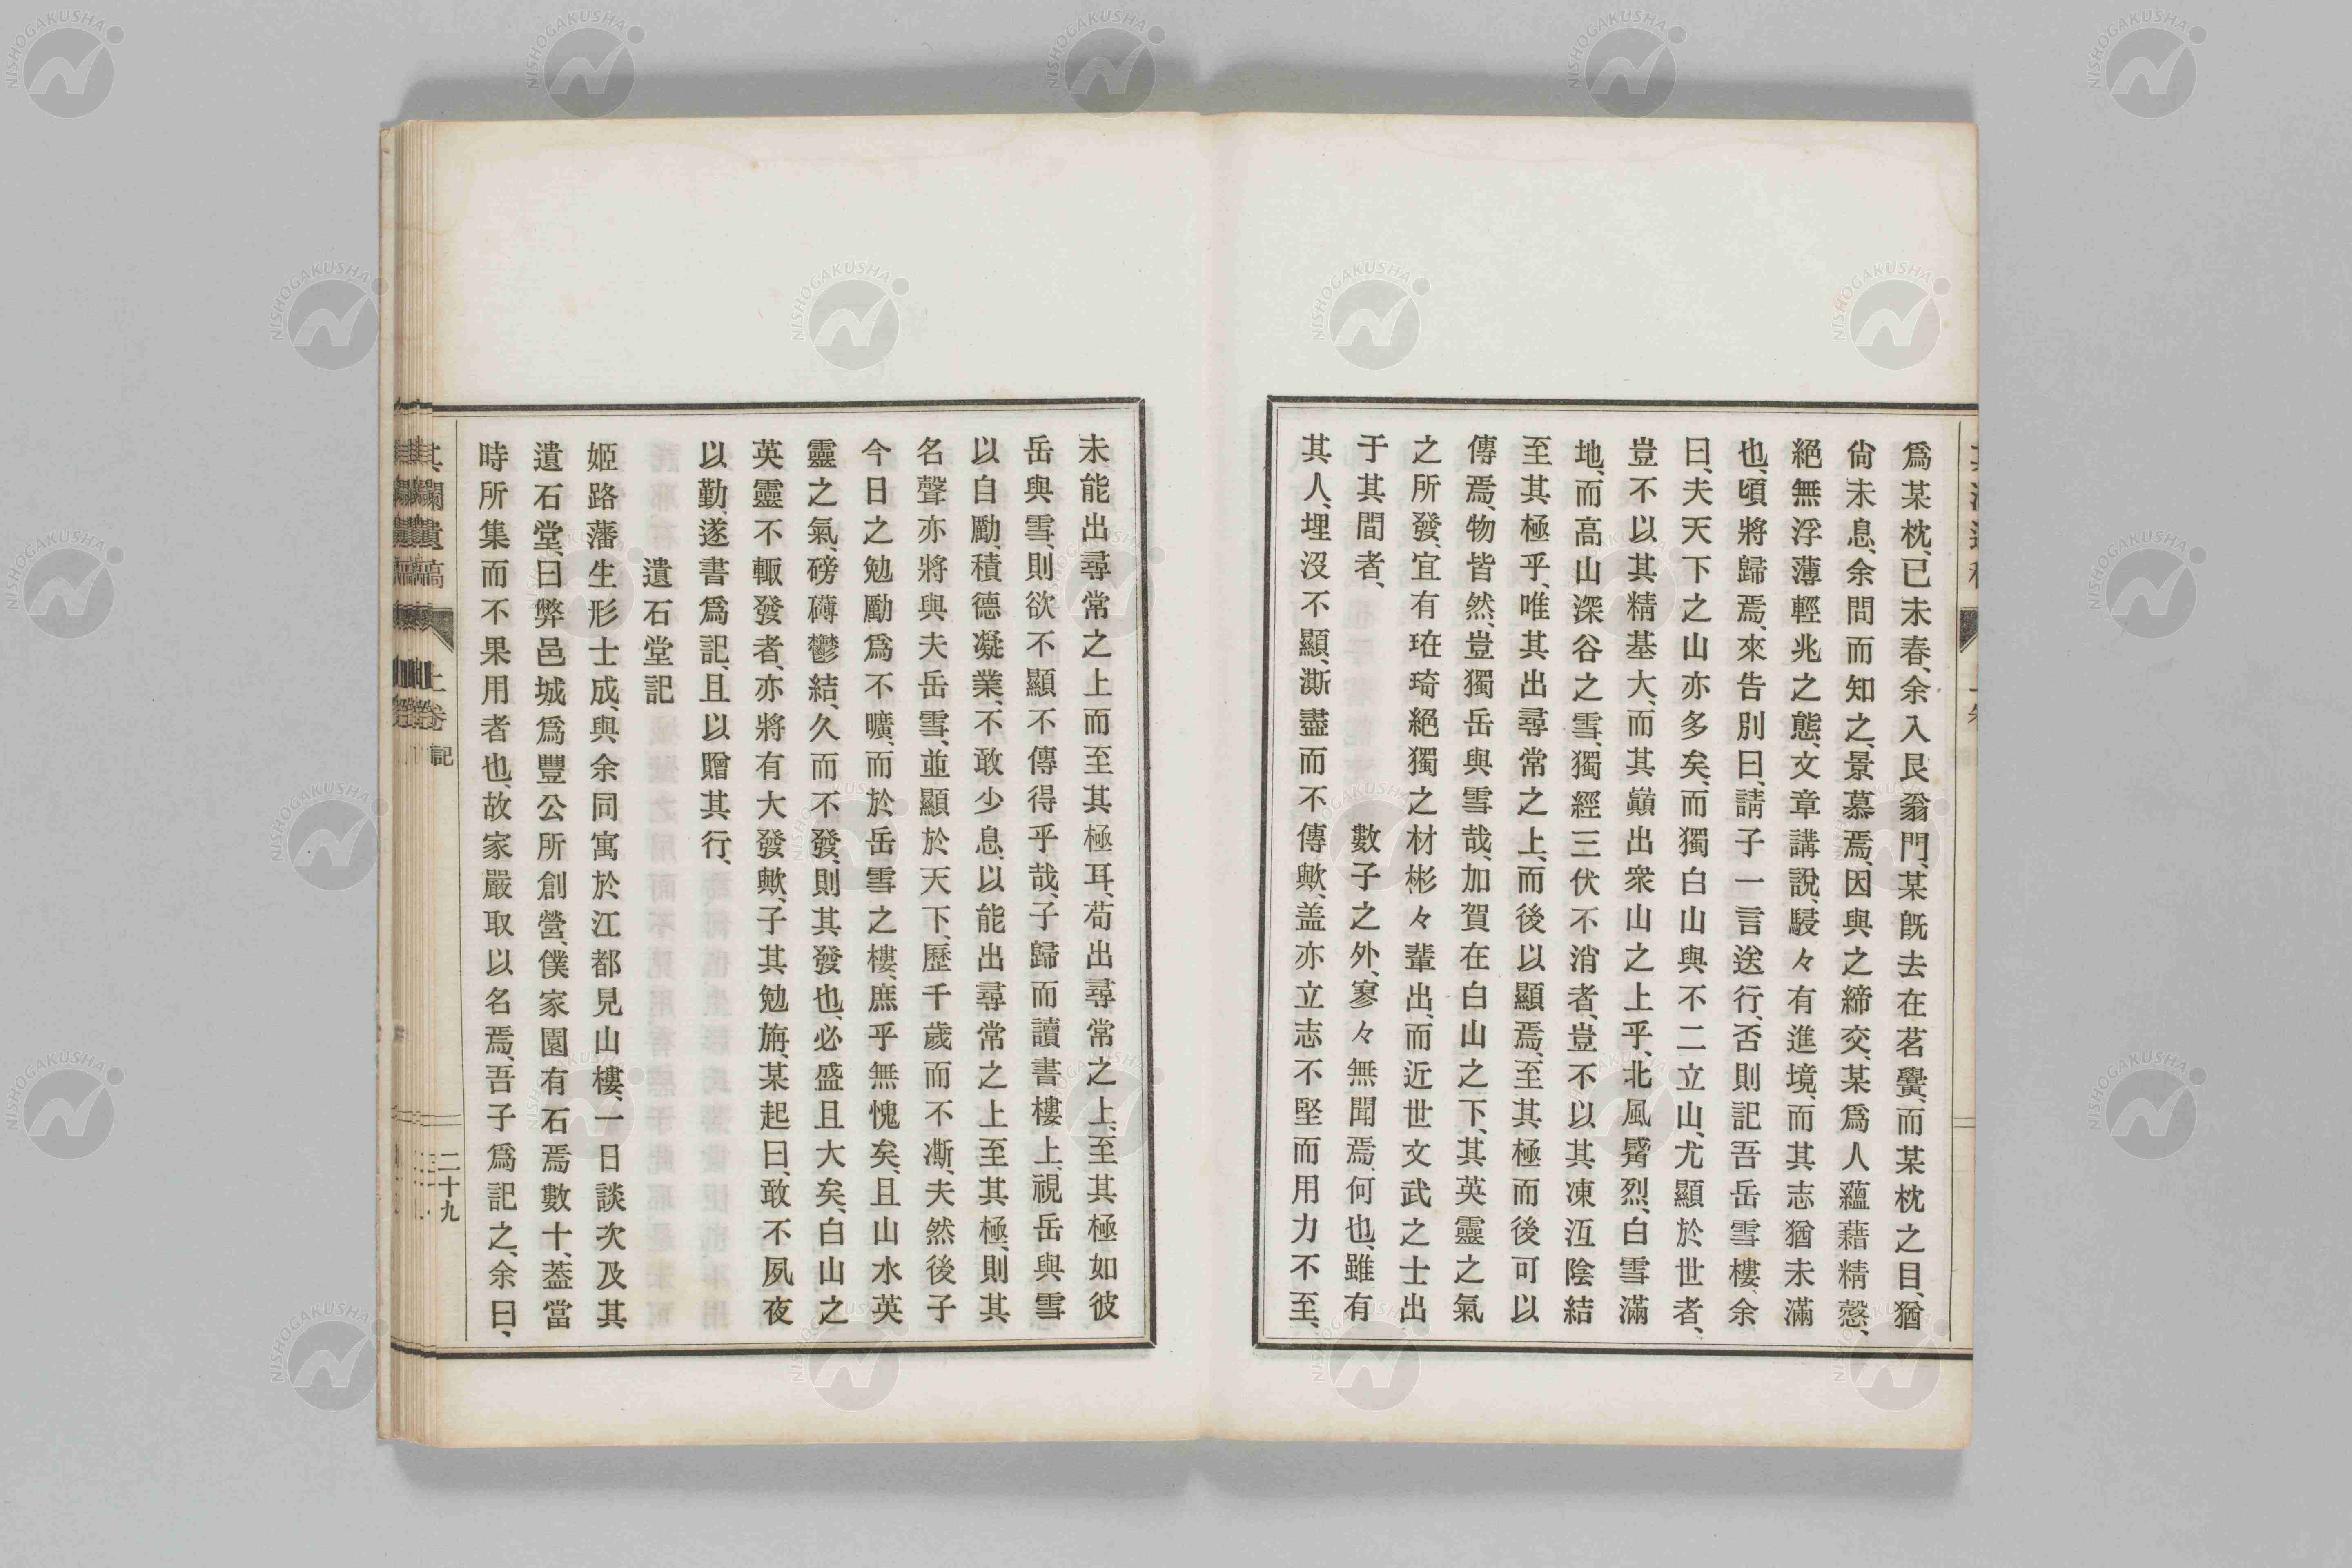 爲某枕、已未春、余入艮翁門、某旣去在茗黌、而某枕之目、猶
尙未息、余問而知之、景慕焉、因與之締交、某爲人蘊藉精愨、
絕無浮薄輕兆之態、文章講說、駸々有進境、而其志猶未滿
也、頃將歸焉、來告別曰、請子一言送行、否則記吾岳雪樓、余
曰、夫天下之山亦多矣、而獨白山與不二立山、尤顯於世者、
豈不以其精基大、而其巓出衆山之上乎、北風觱烈、白雪滿
地、而高山深谷之雪、獨經三伏不消者、豈不以其凍沍陰結
至其極乎、唯其出尋常之上、而後以顯焉、至其極而後可以
傳焉、物皆然、豈獨岳與雪哉、加賀在白山之下、其英靈之氣
之所發、宜有琟琦絕獨之材彬々輩出、而近世文武之士出
于其間者、數子之外、寥々無聞焉、何也、雖有
其人、埋沒不顯、澌盡而不傳歟、盖亦立志不堅而用力不至、
未能出尋常之上而至其極耳、苟出尋常之上、至其極如彼
岳與雪、則欲不顯不傳得乎哉、子歸而讀書樓上、視岳與雪
以自勵、積德凝業、不敢少息、以能出尋常之上至其極、則其
名聲亦將與夫岳雪、並顯於天下、歷千歲而不澌、夫然後子
今日之勉勵爲不曠、而於岳雪之樓、庶乎無愧矣、且山水英
靈之氣、磅礴鬱結、久而不發、則其發也、必盛且大矣、白山之
英靈不輙發者、亦將有大發歟、子其勉旃、某起曰、敢不夙夜
以勤、遂書爲記、且以贈其行、
遺石堂記
姬路藩生形士成、與余同寓於江都見山樓、一日談次及其
遺石堂、曰弊邑城爲豐公所創營、僕家園有石焉數十、葢當
時所集而不果用者也、故家嚴取以名焉、吾子爲記之、余曰、
其瀾遺稿 上卷 記 二十九
NISHOGAKUSHA